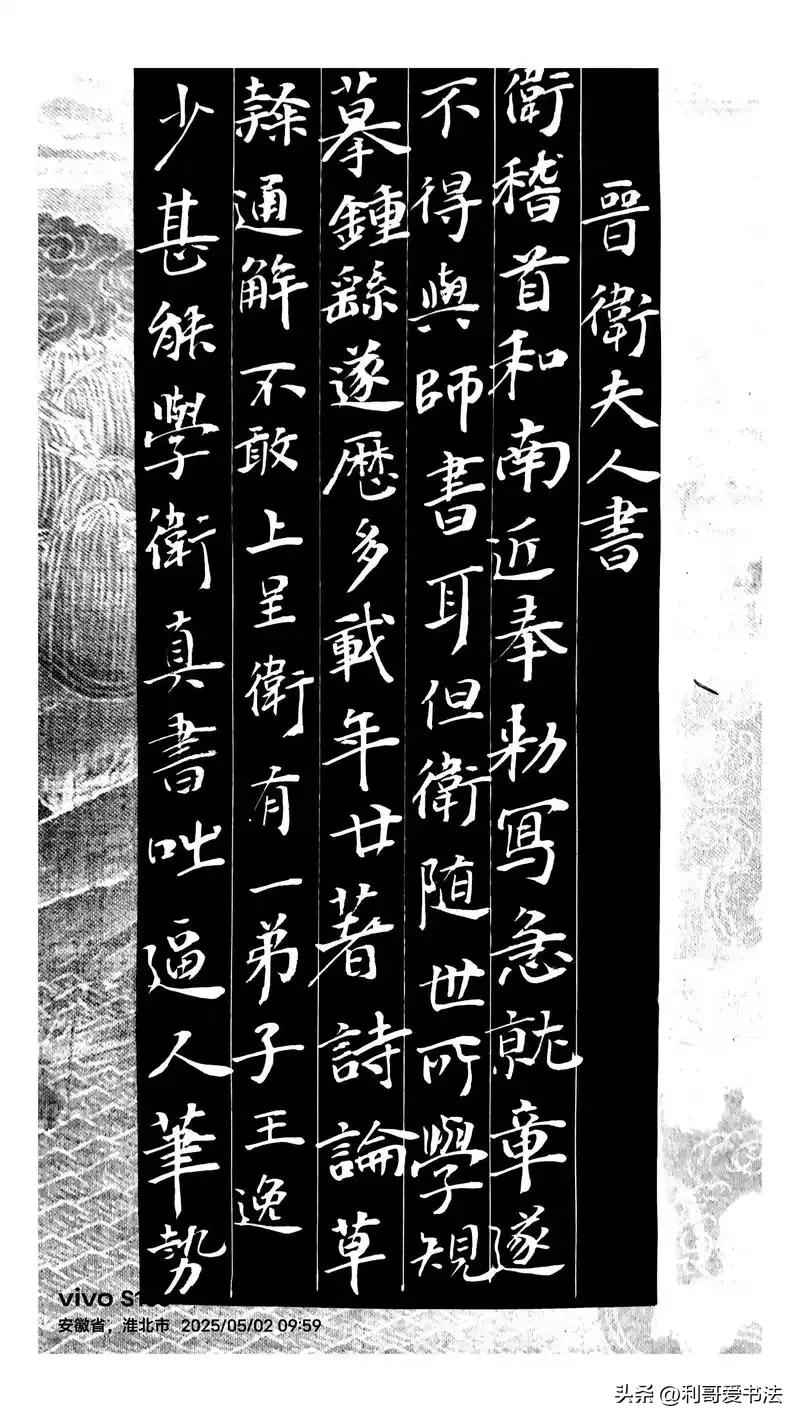 晉衛夫人書
衛稽首和南近奉勅寫急就章遂
不得與師書耳但衛随世所學規
摹鍾繇遂歷多載年廿著詩論草
隸通解不敢上呈衛有一弟子王逸
少甚能學衛真書咄逼人筆勢
vivo S1
安徽省，淮北市 2025/05/02 09:59
头条 @利哥爱书法